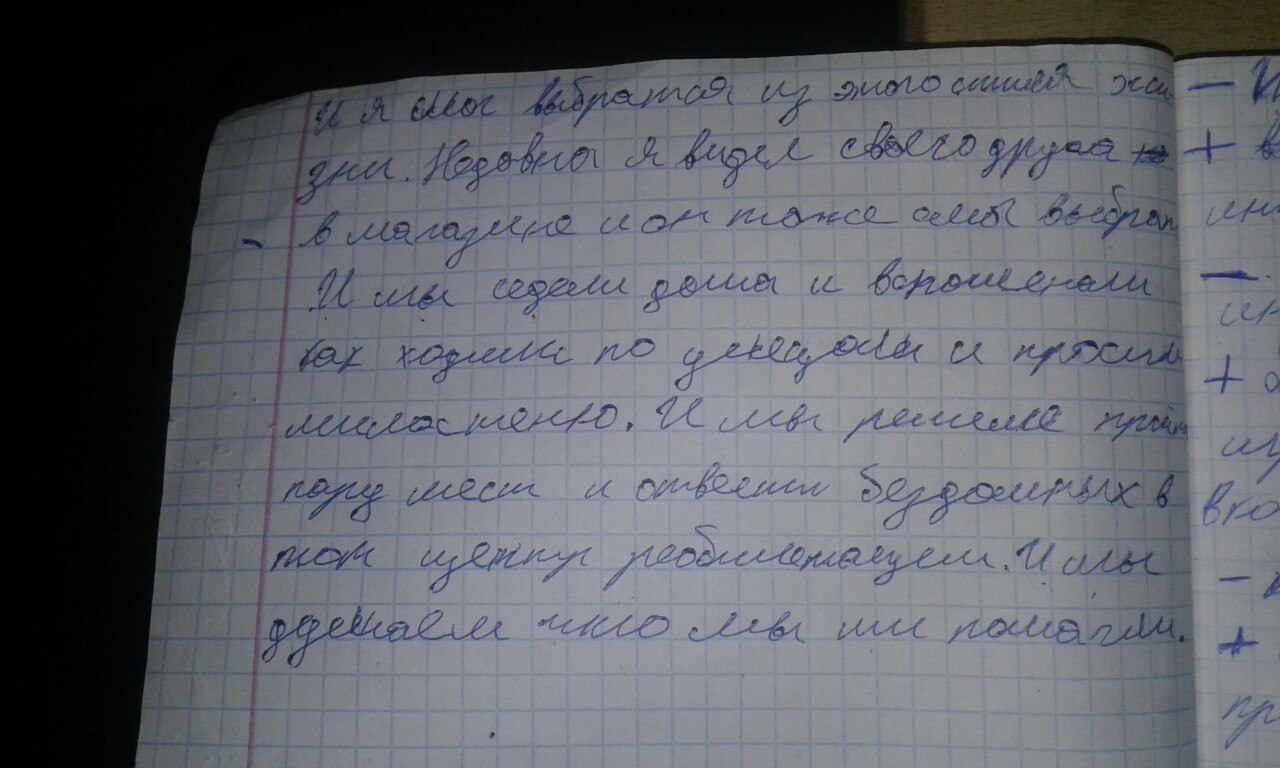 И я смог выбратся из этого стиля жи- - И
зни. Недавно я видел своего друга + в
в магазине и он тоже смог выбрат
И мы седели дома и вспоменали -
как ходили по улицам и просили + 
милостеню. И мы решиле пройти
пару мест и отвести бездомных в
тот центр реобилетацеи. И мы -
думаем что мы им помагли. +
пр